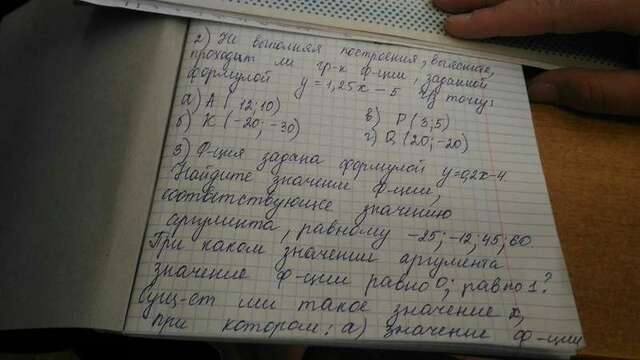 2) Не выполняя построения, выясните,
проходит ли гр-к ф-ции, заданной
формулой y = 1,25x - 5 ч/з точку:
а) A ( 12; 10)
в) P (3; 5)
б) K (-20; -30)
г) Q (20; -20)
3) Ф-ция задана формулой y=0,2x-4.
Найдите значение ф-ции,
соответствующее значению
аргумента, равному -25; -12; 45; 60
При каком значении аргумента
значение ф-ции равно 0; равно 1?
Сущ-ет ли такое значение x,
при котором: а) значение ф-ции